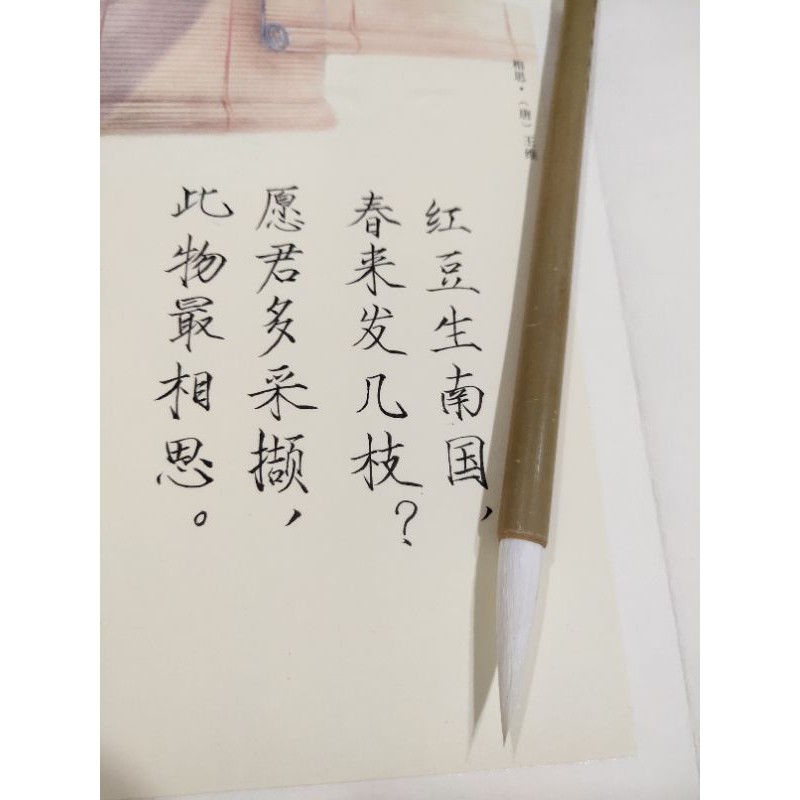 相思·（唐）王维
红豆生南国，
春来发几枝？
愿君多采撷，
此物最相思。